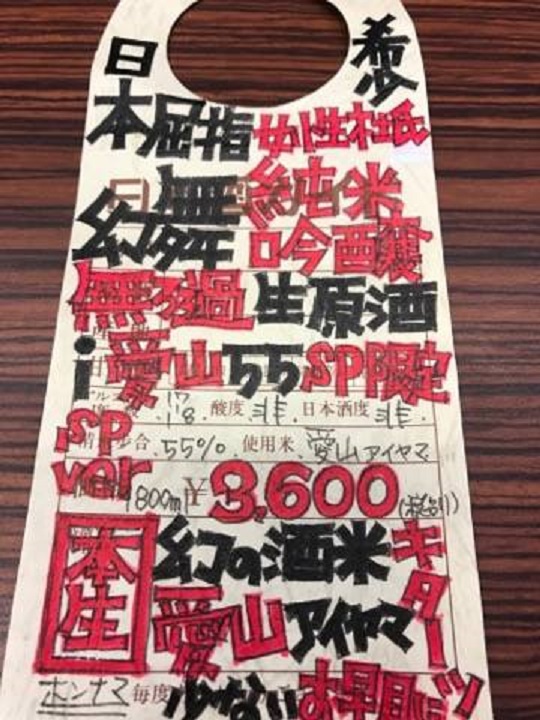 希少
日本屈指 女性杜氏
幻舞 純米
吟醸
無ろ過 生原酒
i 愛山55 SP限定
17
18. 酸度 非. 日本酒度 非.
SP
歩合. 55% 使用米. 愛山アイヤマ
ver
1800ml ￥3,600(税別)
本生 幻の酒米 キター
愛山アイヤマ
ホンナマ 毎度 少ない お早目ニ